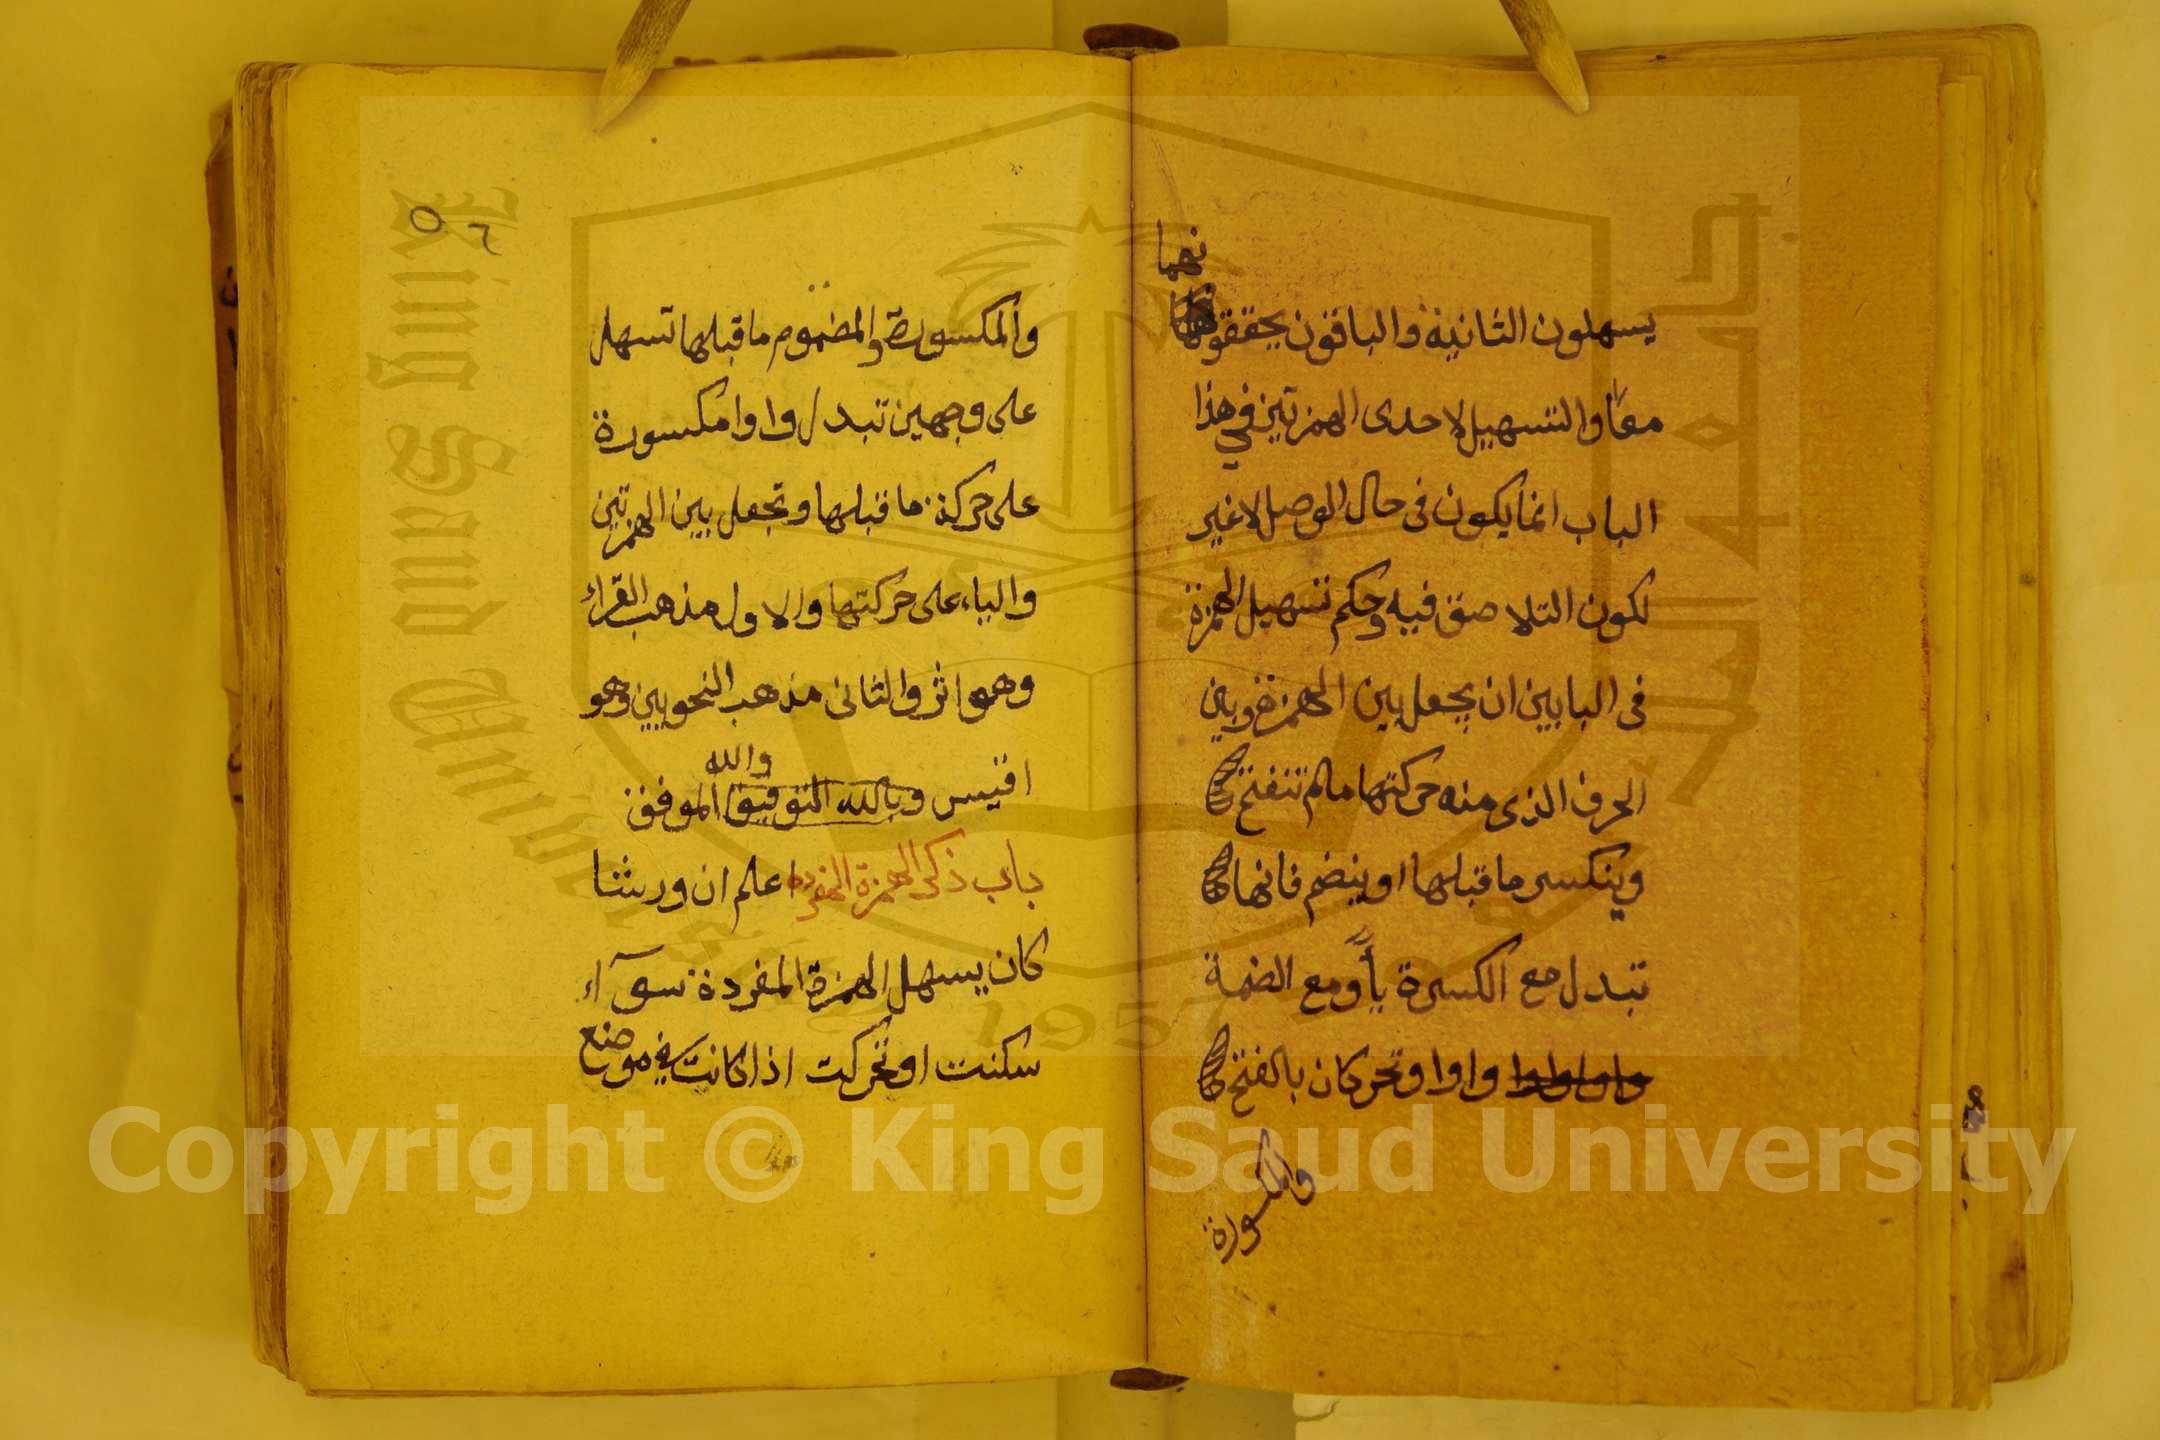 يسهلون الثانية والباقون يحققونهما
معًا والتسهيل لاحدى الهمزتين في هذا
الباب انما يكون فى حال الوصل لا غير
لكون التلاصق فيه وحكم تسهيل الهمزة
فى البابين ان يجعل بين الهمزة وبين
الحرف الذى منه حركتها مالم تنفتح
وينكسر ما قبلها او ينضم فانها
تبدل مع الكسرة ياً ومع الضمة
واوا واوا وتحركان بالفتح
والمكسورة
٥٦
والمكسورة والمضموم ما قبلها تسهل
على وجهين تبدل واوا مكسورة
على حركة ما قبلها وتجعل بين الهمزتين
والياء على حركتها والاول مذهب القراء
وهو اثر والثانى مذهب النحويين وهو
والله
اقيس وبالله التوفيق الموفق
باب ذكر الهمزة المفردة اعلم ان ورشا
كان يسهل الهمزة المفردة سوآء
سكنت او تحركت اذا كانت في موضع
King Saud University
جامعة الملك سعود
1957
Copyright © King Saud University